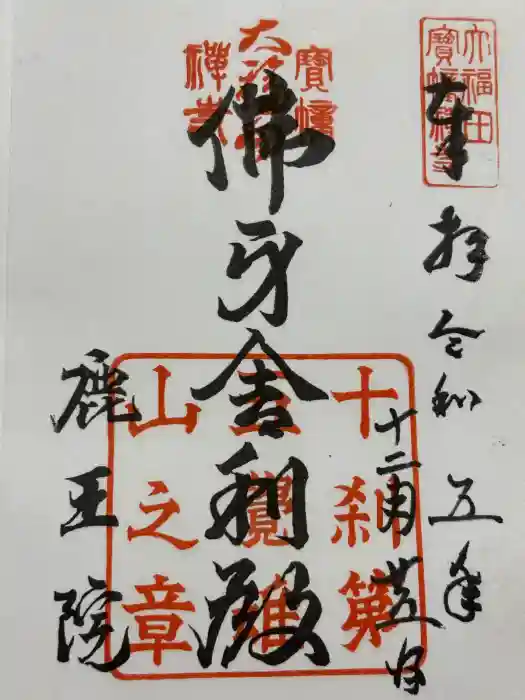 大福田
寶幢禅寺
奉拝 令和五年
十二月廿五日
寶幢
大福田
禅寺
佛牙舎利殿
十刹第
覺雄
山之章
鹿王院